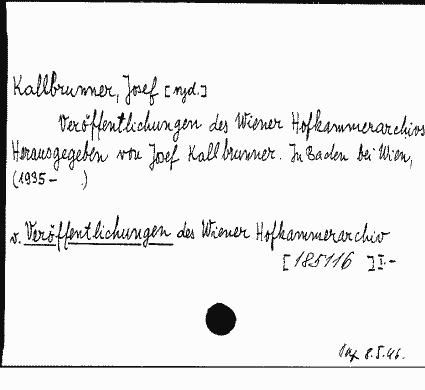 Kallbrunner, Josef [nyd.]
Veröffentlichungen des Wiener Hofkammerarchivs
Herausgegeben von Josef Kallbrunner. In Baden bei Wien,
(1935- .)
v. Veröffentlichungen des Wiener Hofkammerarchiv
[185116 ] I.-
8.I.46.